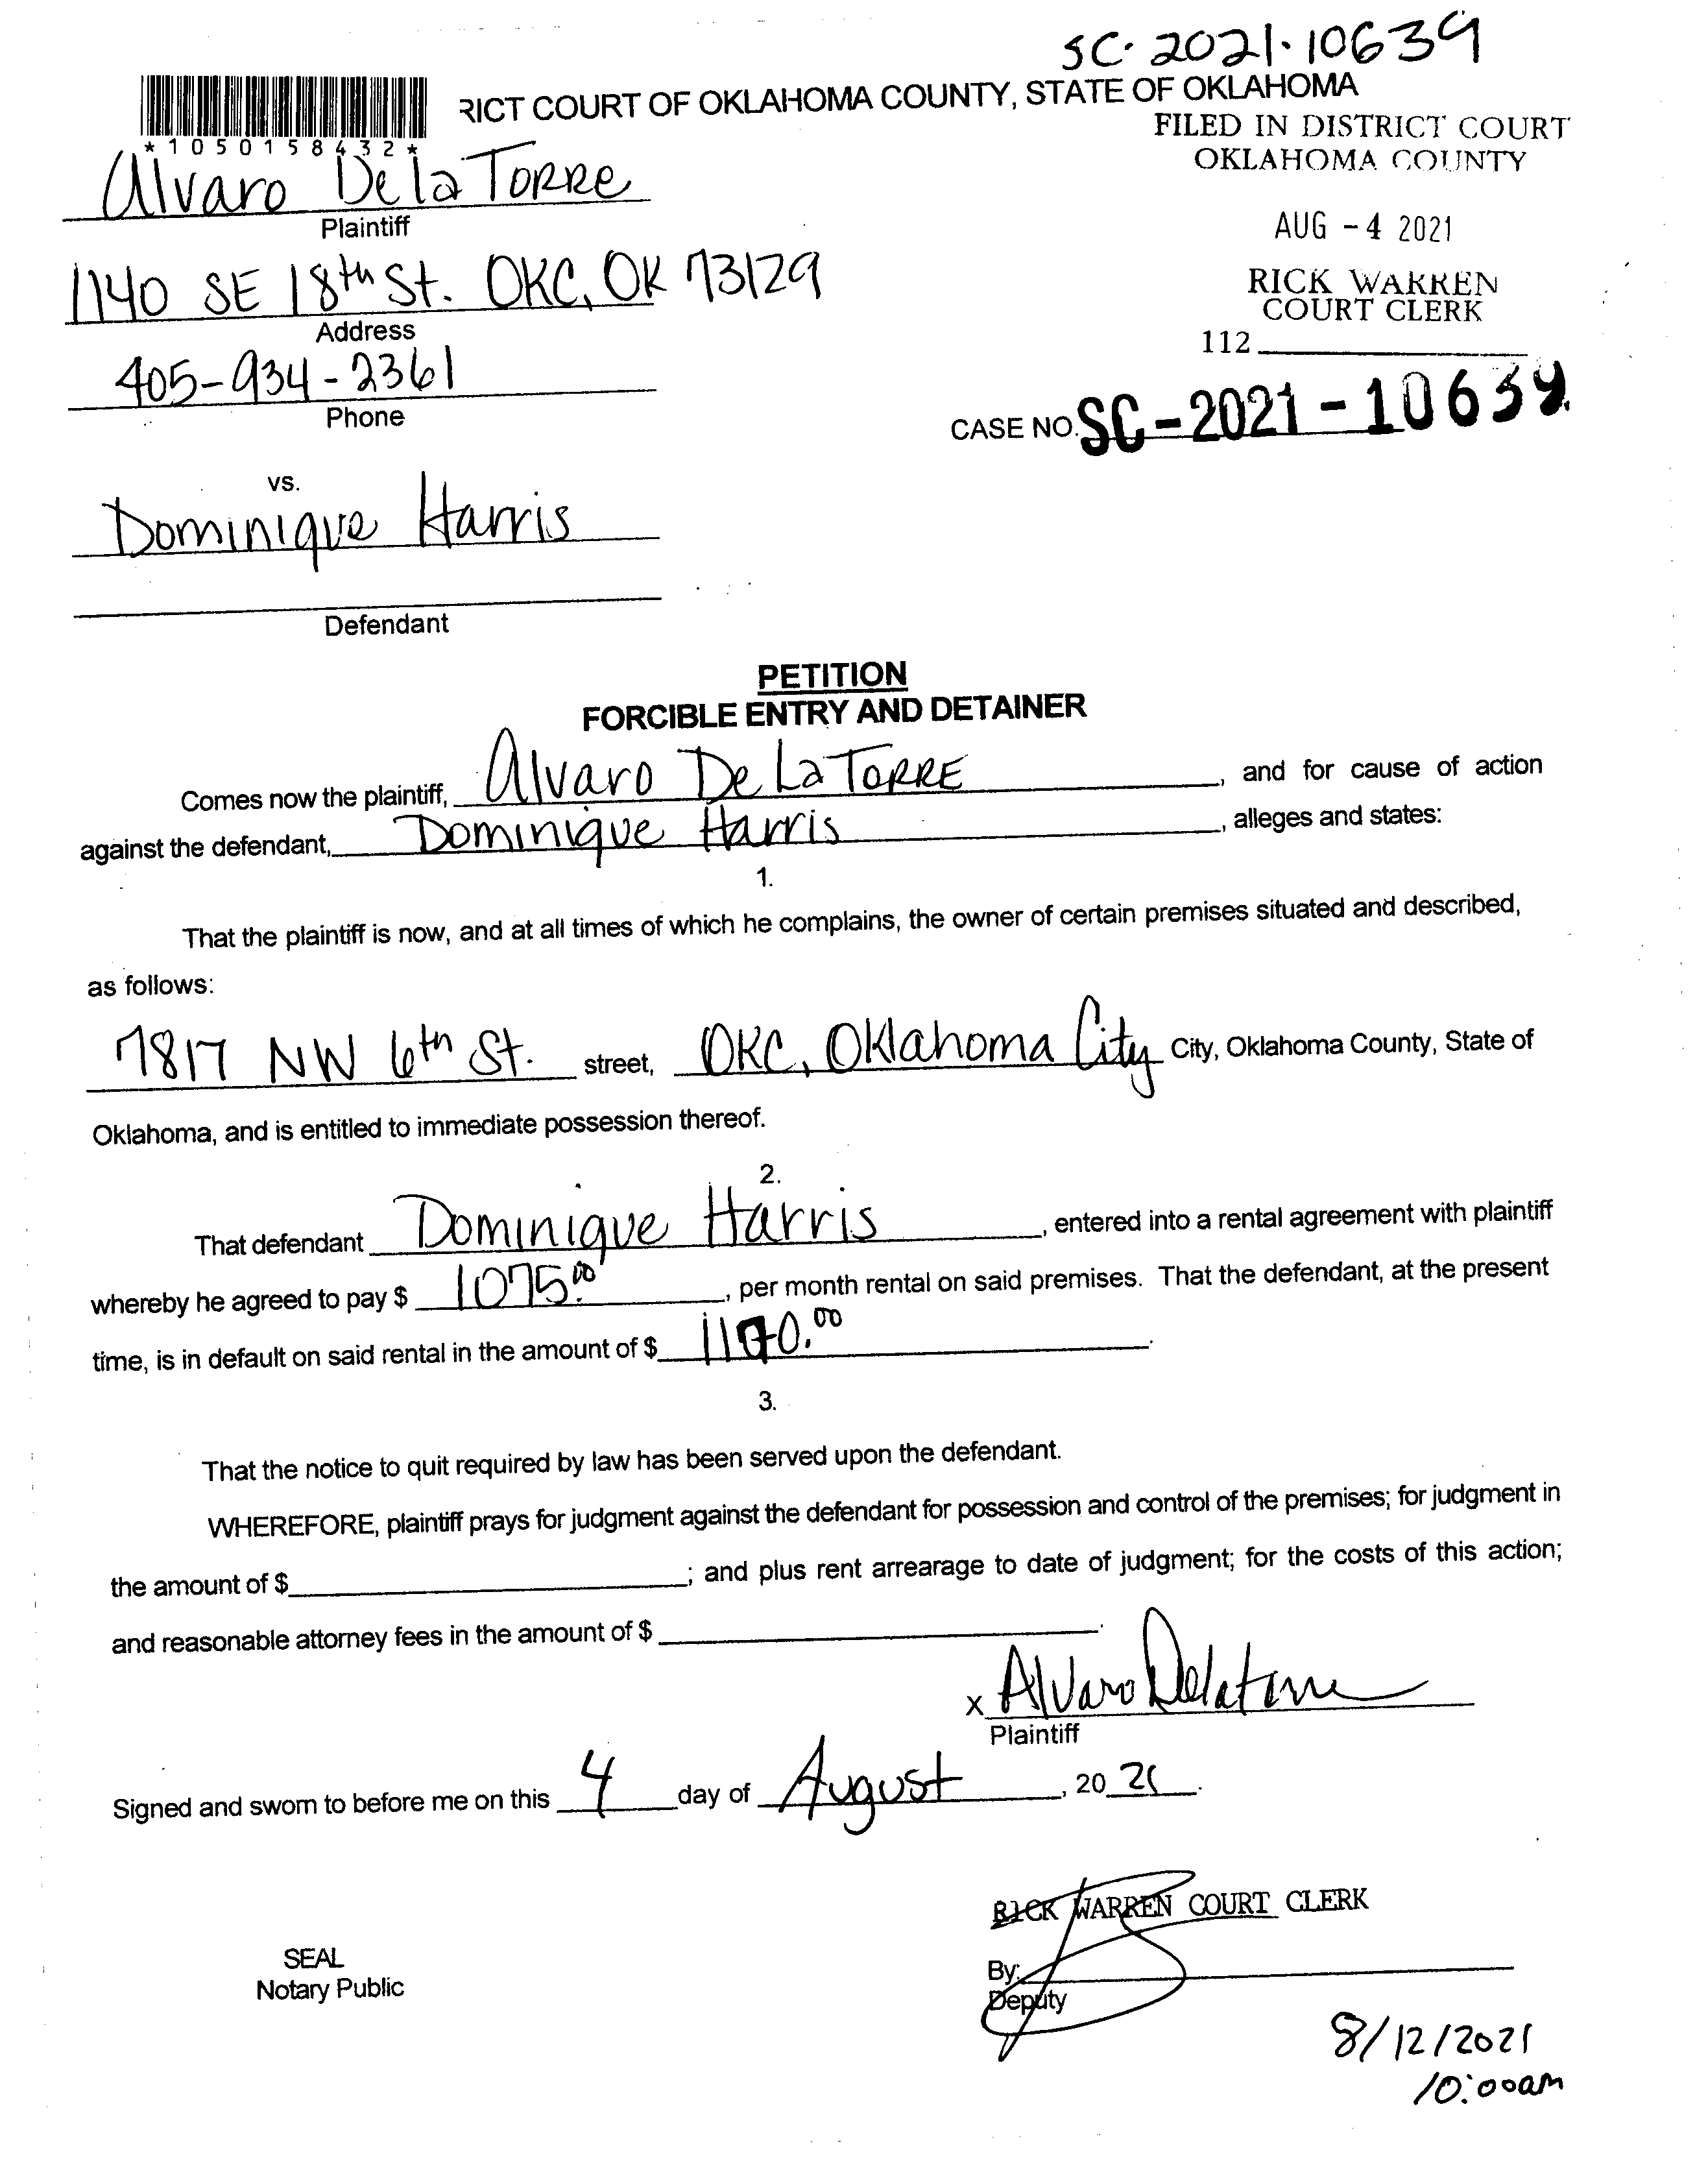 SC-2021-10639
RICT COURT OF OKLAHOMA COUNTY, STATE OF OKLAHOMA
FILED IN DISTRICT COURT
OKLAHOMA COUNTY
*1050158432*
Alvaro De la TORRE
Plaintiff
AUG -4 2021
1140 SE 18th St. OKC, OK 73129
Address
RICK WARREN
COURT CLERK
112
405-934-2361
Phone
CASE NO. SC-2021-10639
vs.
Dominique Harris
Defendant
PETITION
FORCIBLE ENTRY AND DETAINER
Comes now the plaintiff, Alvaro De La TORRE, and for cause of action
against the defendant, Dominique Harris, alleges and states:
1.
That the plaintiff is now, and at all times of which he complains, the owner of certain premises situated and described,
as follows:
7817 NW 6th St. street, OKC, Oklahoma City City, Oklahoma County, State of
Oklahoma, and is entitled to immediate possession thereof.
2.
That defendant Dominique Harris, entered into a rental agreement with plaintiff
whereby he agreed to pay $ 1075.00, per month rental on said premises. That the defendant, at the present
time, is in default on said rental in the amount of $
3.
That the notice to quit required by law has been served upon the defendant.
WHEREFORE, plaintiff prays for judgment against the defendant for possession and control of the premises; for judgment in
the amount of $ ; and plus rent arrearage to date of judgment; for the costs of this action;
and reasonable attorney fees in the amount of $ .
x Alvaro Delatorre
Plaintiff
Signed and sworn to before me on this 4 day of August, 2021.
RICK WARREN COURT CLERK
SEAL
Notary Public
By:
Deputy
8/12/2021
10:00am